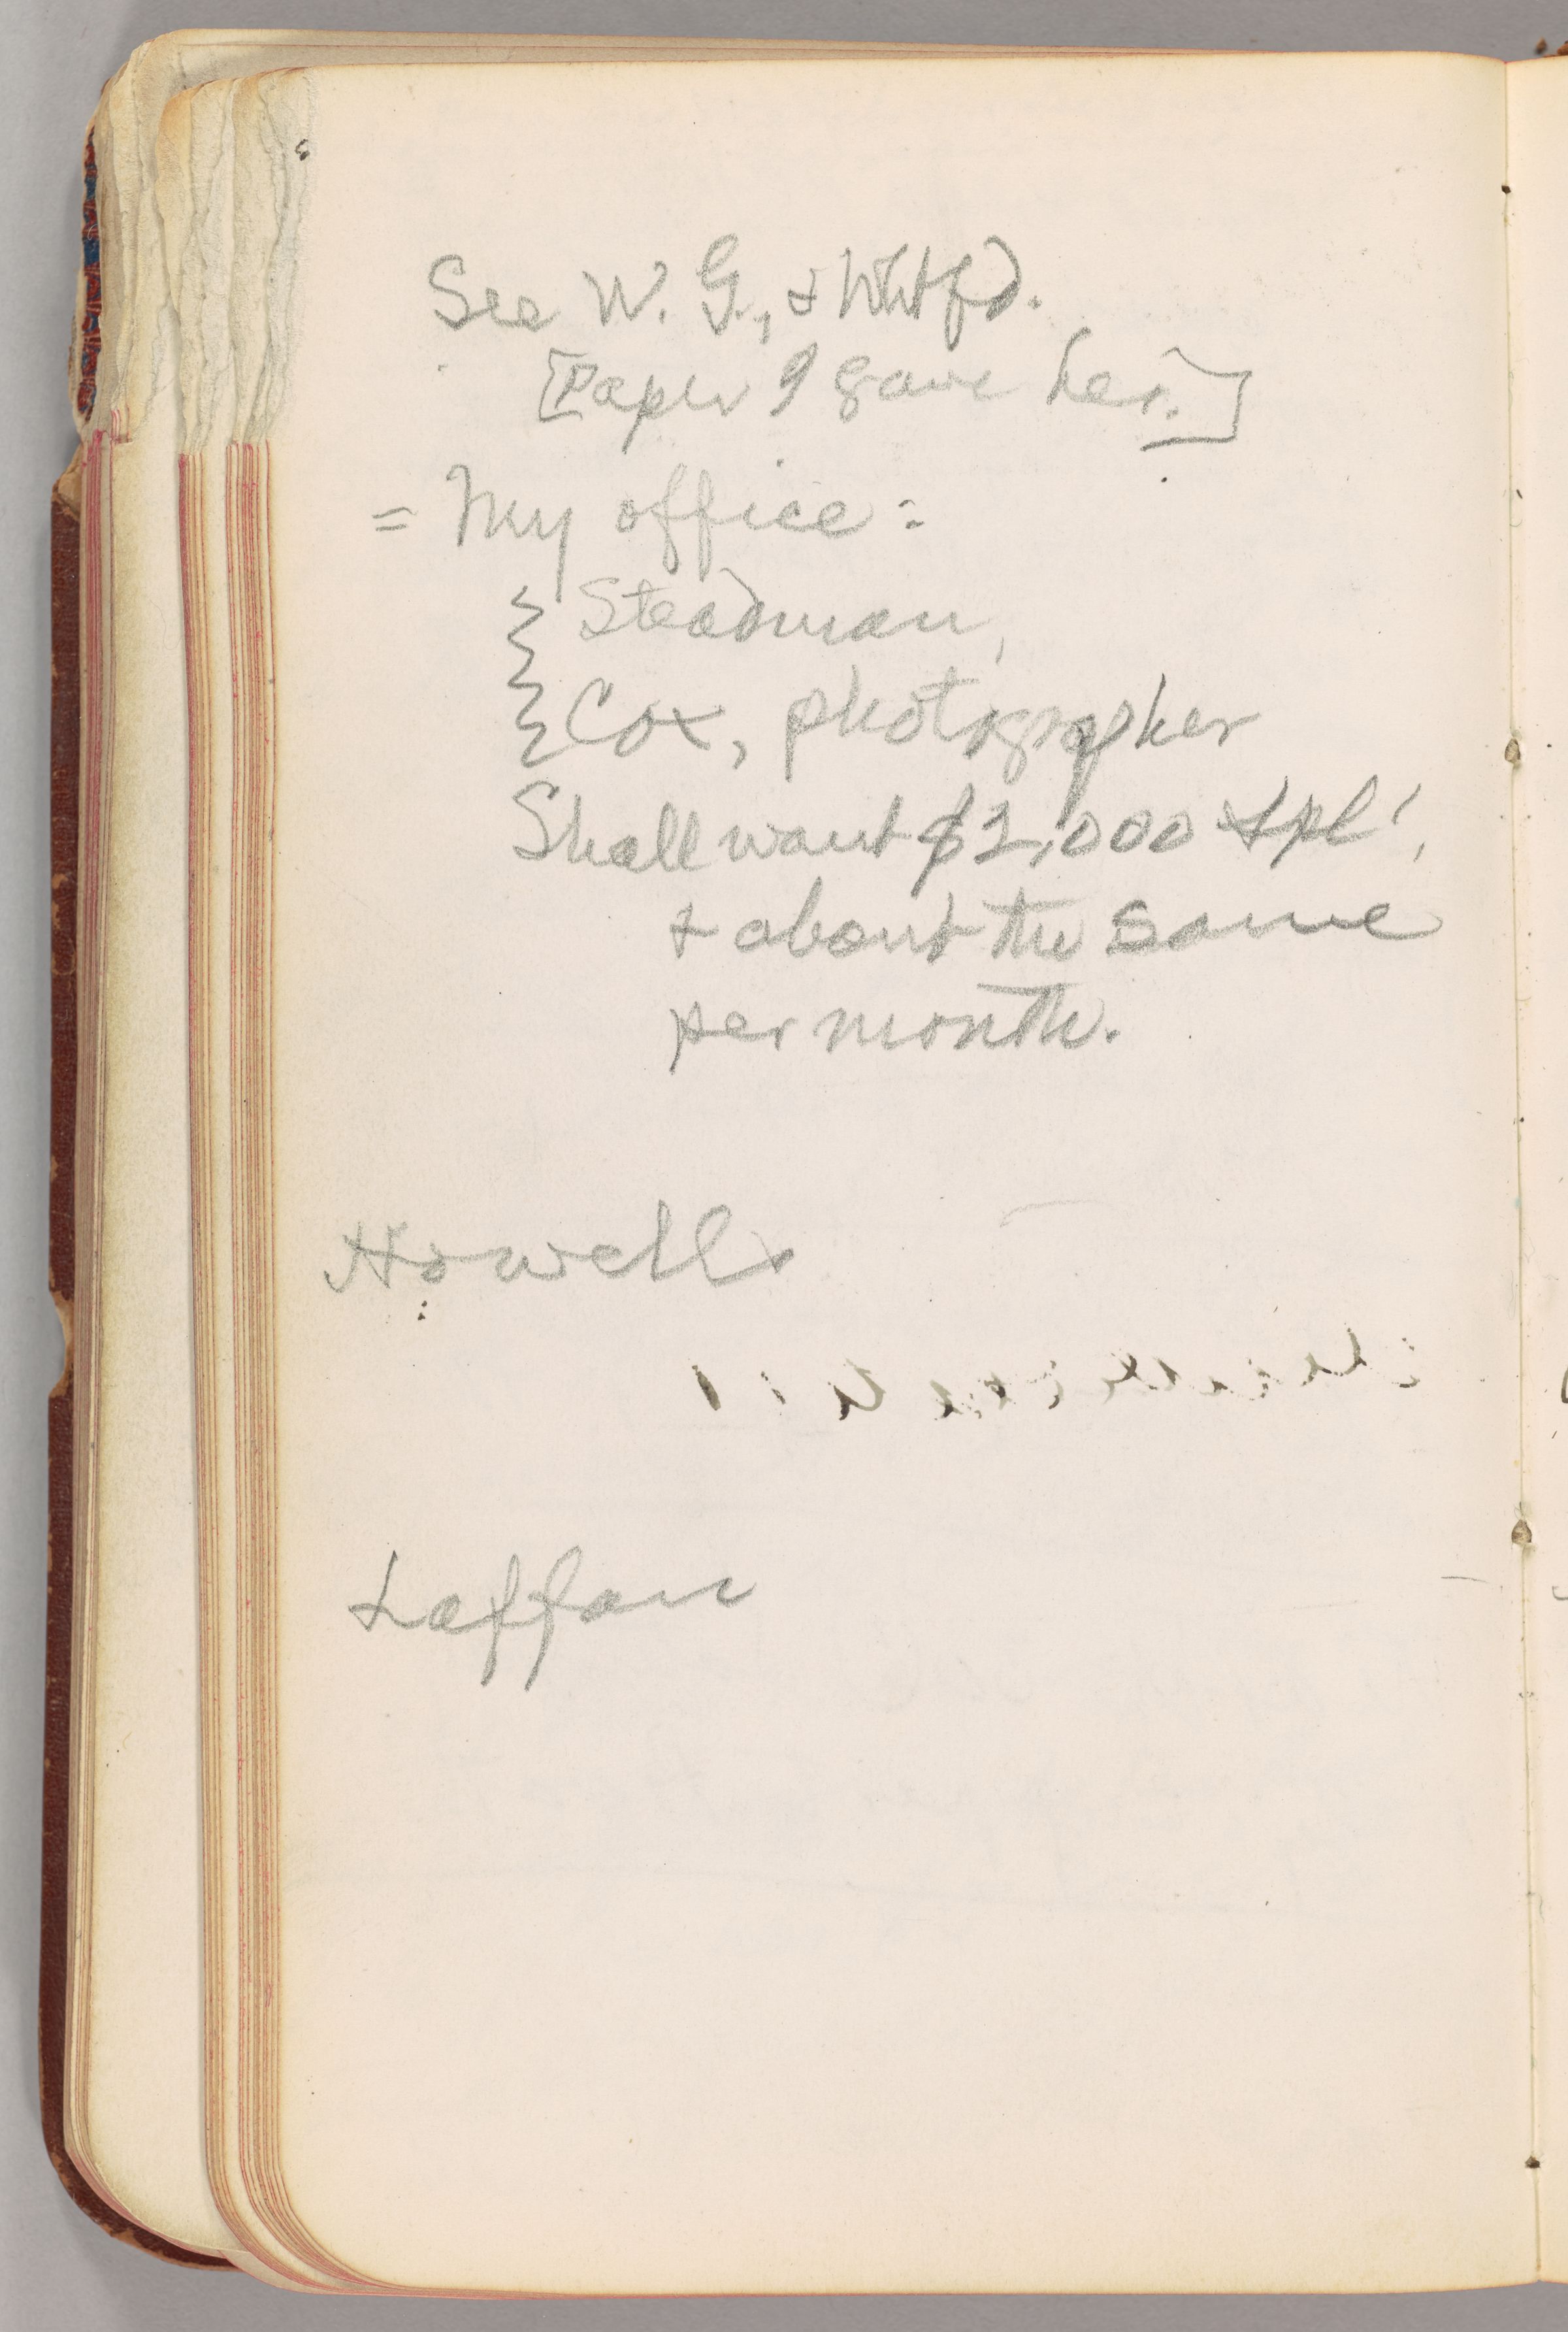 See W. G., & Whitfd.
[Paper I gave her.]
= My office:
Steadman,
Cox, photographer
Shall want $2,000 spl',
& about the same
per month.
Howells
Laffan